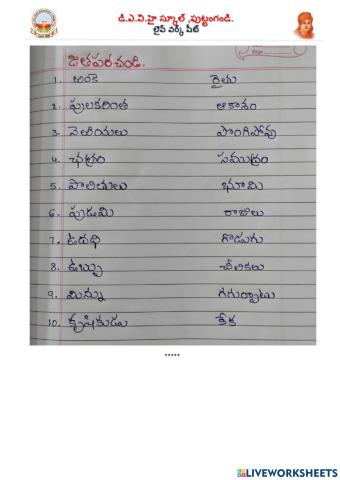 డి.ఎ.వి.హై స్కూల్ ,పుట్టంగండి.
లైవ్ వర్క్ షీట్
జతపరచండి.
1. అంకె రైతు
2. పులకరింత ఆకాశం
3. నెఱియలు పొంగిపోవు
4. ఛత్రం సముద్రం
5. పాలితులు భూమి
6. పుడమి రాజులు
7. ఉదధి గొడుగు
8. ఉబ్బు చీలికలు
9. మిన్ను గగుర్పాటు
10. కృషికుడు కేక
*****
LIVEWORKSHEETS